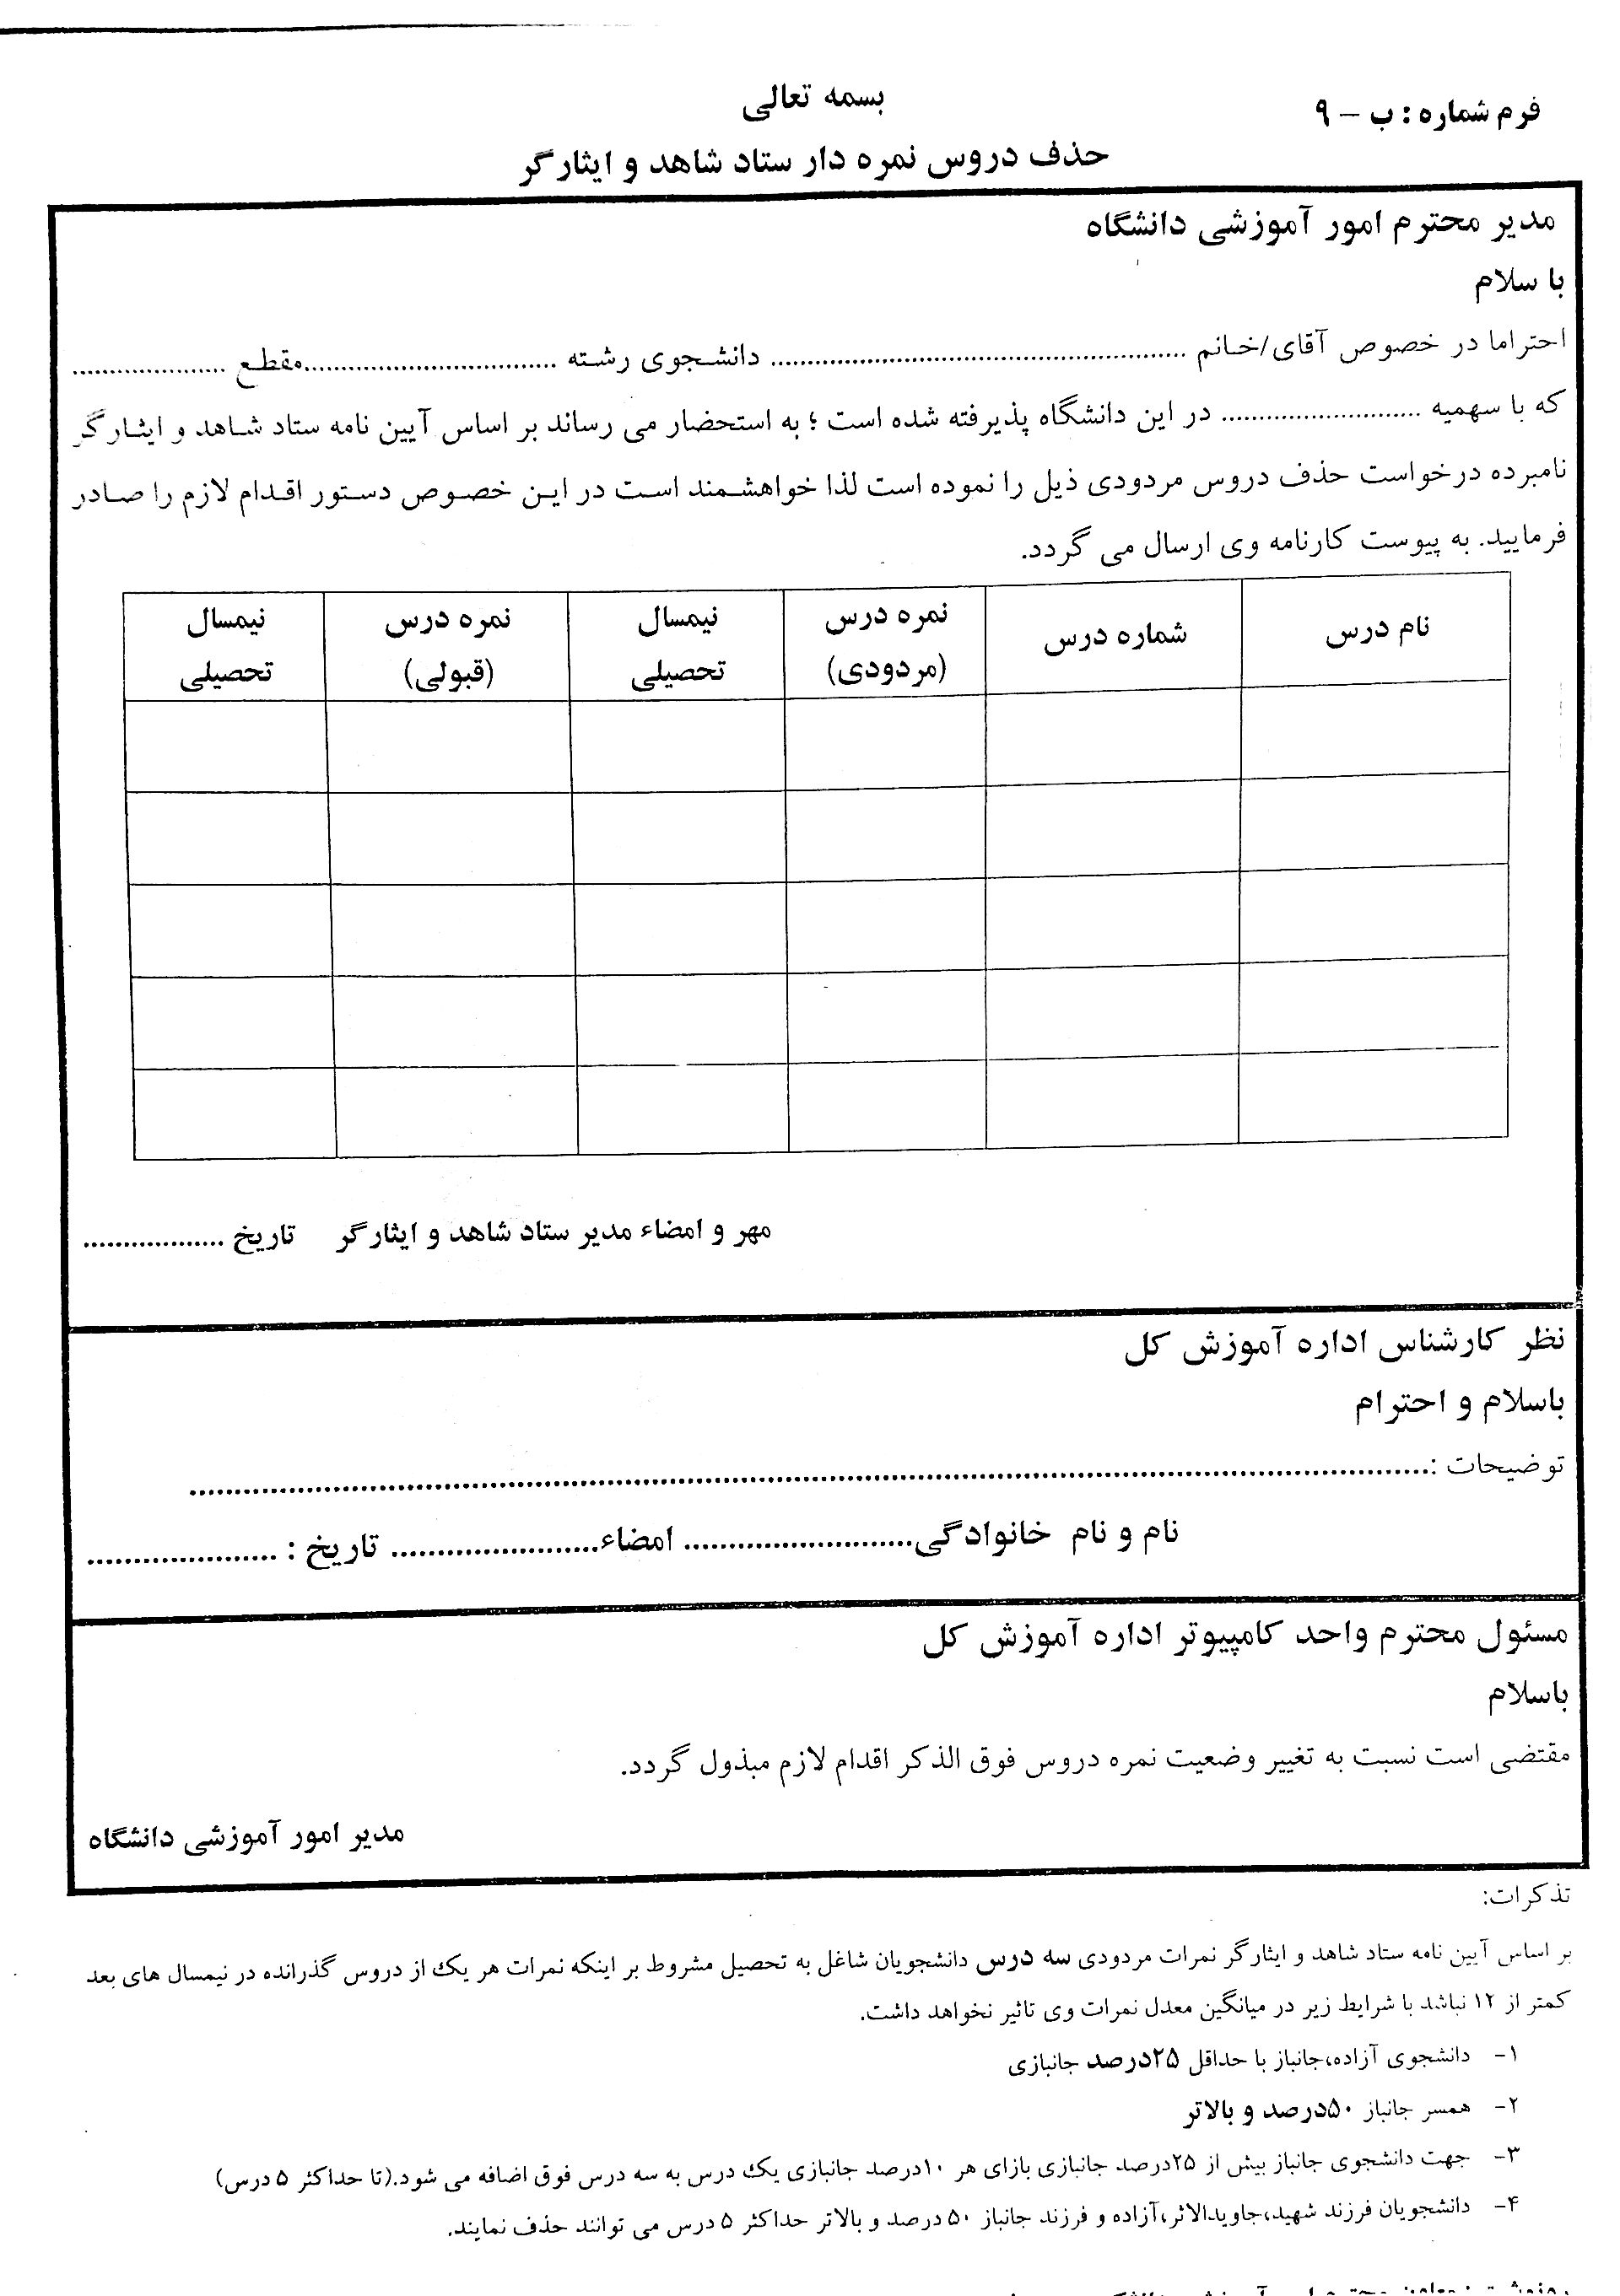 فرم شماره : ب – ۹
بسمه تعالی
حذف دروس نمره دار ستاد شاهد و ایثارگر
مدیر محترم امور آموزشی دانشگاه
با سلام
احتراما در خصوص آقای/خانم ........................................................ دانشجوی رشته ..................................مقطع .....................
که با سهمیه .......................... در این دانشگاه پذیرفته شده است ؛ به استحضار می رساند بر اساس آیین نامه ستاد شاهد و ایثارگر
نامبرده درخواست حذف دروس مردودی ذیل را نموده است لذا خواهشمند است در این خصوص دستور اقدام لازم را صادر
فرمایید. به پیوست کارنامه وی ارسال می گردد.
نام درس	شماره درس	نمره درس (مردودی)	نیمسال تحصیلی	نمره درس (قبولی)	نیمسال تحصیلی
مهر و امضاء مدیر ستاد شاهد و ایثارگر    تاریخ ..................
نظر کارشناس اداره آموزش کل
باسلام و احترام
توضیحات :................................................................................................................
نام و نام خانوادگی......................... امضاء....................... تاریخ : .....................
مسئول محترم واحد کامپیوتر اداره آموزش کل
باسلام
مقتضی است نسبت به تغییر وضعیت نمره دروس فوق الذکر اقدام لازم مبذول گردد.
مدیر امور آموزشی دانشگاه
تذکرات:
بر اساس آیین نامه ستاد شاهد و ایثارگر نمرات مردودی سه درس دانشجویان شاغل به تحصیل مشروط بر اینکه نمرات هر یک از دروس گذرانده در نیمسال های بعد
کمتر از ۱۲ نباشد با شرایط زیر در میانگین معدل نمرات وی تاثیر نخواهد داشت.
۱- دانشجوی آزاده،جانباز با حداقل ۲۵درصد جانبازی
۲- همسر جانباز ۵۰درصد و بالاتر
۳- جهت دانشجوی جانباز بیش از ۲۵درصد جانبازی بازای هر ۱۰درصد جانبازی یک درس به سه درس فوق اضافه می شود.(تا حداکثر ۵ درس)
۴- دانشجویان فرزند شهید،جاویدالاثر،آزاده و فرزند جانباز ۵۰ درصد و بالاتر حداکثر ۵ درس می توانند حذف نمایند.